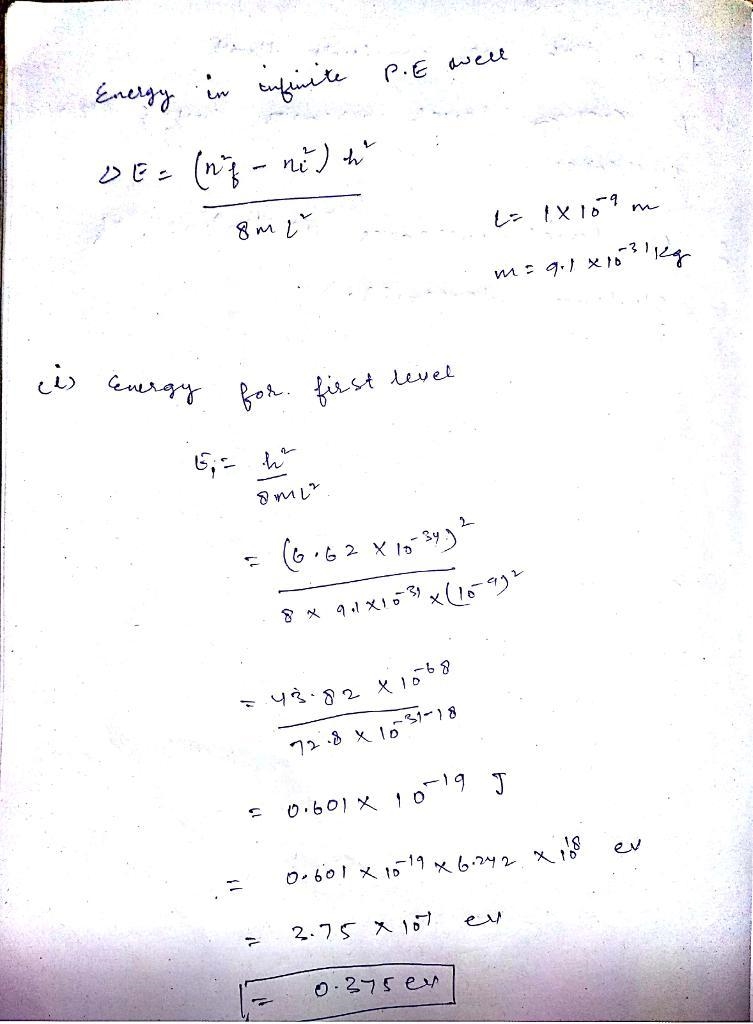 Energy in infinite P.E well
ΔE = (n²f - ni²) h²
8mL²
L = 1 × 10⁻⁹ m
m = 9.1 × 10⁻³¹ Kg
(i) Energy for first level
E₁ = h²
8mL²
= (6.62 × 10⁻³⁴)²
8 × 9.1 × 10⁻³¹ × (10⁻⁹)²
= 43.82 × 10⁻⁶⁸
72.8 × 10⁻³¹⁻¹⁸
= 0.601 × 10⁻¹⁹ J
= 0.601 × 10⁻¹⁹ × 6.242 × 10¹⁸ ev
= 3.75 × 10⁻¹ ev
= 0.375 ev